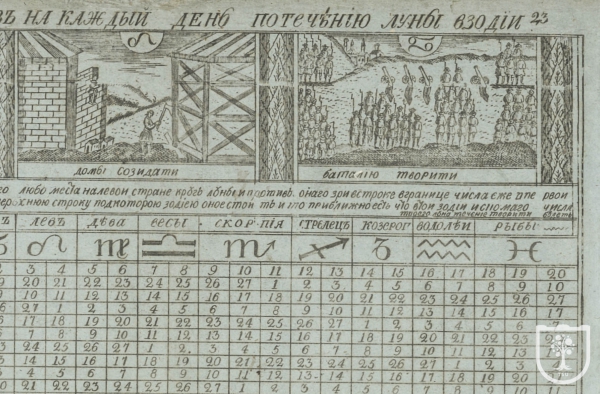 ВЪ НА КАЖДЫЙ ДЕНЬ ПОТЕЧЕНIЮ ЛУНЫ ВЗОДIИ 23
домы созидати
баталiю творити
любо места налевои стране онаго зри встроке вгранице числа еже пе рвои
строку подкоторою зодiею оное стои тъ и то приближность что втои зодiи числа
течение творитъ
ЛЕВЪ ДѢВА ВЕСЫ СКОРПIЯ СТРЕЛЕЦЪ КОЗЕРОГ ВОДОЛѢИ РЫБЫ
♌ ♍ ♎ ♏ ♐ ♑ ♒ ♓
2 3 4 5 6 7 8 9 10 11 12 13 14 15 16 17 18 19 20
20 21 22 23 24 25 26 27 1 2 3 4 5 6 7 8 9 10
9 10 11 12 13 14 15 16 17 18 19 20 21 22 23 24 25 26 27
27 1 2 3 4 5 6 7 8 9 10 11 12 13 14 15 16 17
17 18 19 20 21 22 23 24 25 26 27 1 2 3 4 5 6 7
7 8 9 10 11 12 13 14 15 16 17 18 19 20 21 22 23
24 25 26 27 1 2 3 4 5 6 7 8 9 10 11 12 13
14 15 16 17 18 19 20 21 22 23 24 25 26 27 1 2 3
4 5 6 7 8 9 10 11 12 13 14 15 16 17 18 19 20
21 22 23 24 25 26 27 1 2 3 4 5 6 7 8 9 10 11